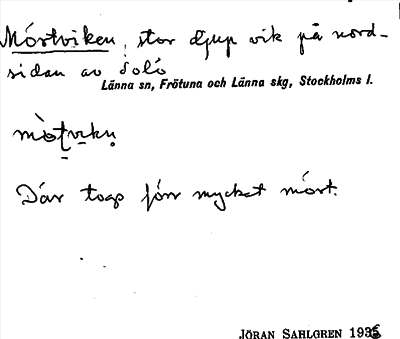 Mörtviken, stor djup vik på nord-
sidan av Solö
Länna sn, Frötuna och Länna skg, Stockholms l.
Där togs förr mycket mört.
JÖRAN SAHLGREN 1935